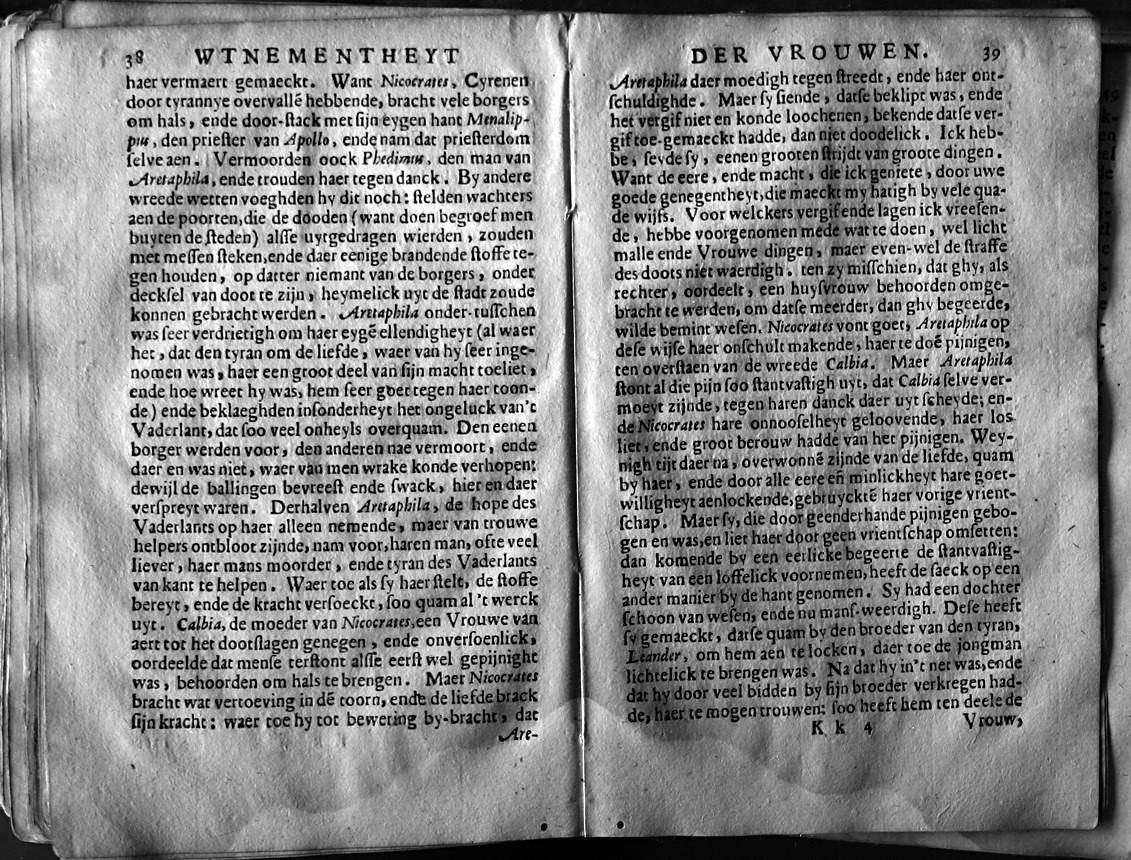 38 WTNEMENTHEYT
haer vermaert gemaeckt. Want Nicocrates, Cyrenen
door tyrannye overvallē hebbende, bracht vele borgers
om hals, ende door-stack met sijn eygen hant Menalip-
pus, den priester van Apollo, ende nam dat priesterdom
selve aen. Vermoorden oock Phedimus, den man van
Aretaphila, ende trouden haer tegen danck. By andere
wreede wetten voeghden hy dit noch: stelden wachters
aen de poorten, die de dooden (want doen begroef men
buyten de steden) alsse uytgedragen wierden, zouden
met messen steken, ende daer eenige brandende stoffe te-
gen houden, op datter niemant van de borgers, onder
decksel van doot te zijn, heymelick uyt de stadt zoude
konnen gebracht werden. Aretaphila onder-tusschen
was seer verdrietigh om haer eygē ellendigheyt (al waer
het, dat den tyran om de liefde, waer van hy seer inge-
nomen was, haer een groot deel van sijn macht toeliet,
ende hoe wreet hy was, hem seer goet tegen haer toon-
de) ende beklaeghden insonderheyt het ongeluck van't
Vaderlant, dat soo veel onheyls overquam. Den eenen
borger werden voor, den anderen nae vermoort, ende
daer en was niet, waer van men wrake konde verhopen:
dewijl de ballingen bevreest ende swack, hier en daer
verspreyt waren. Derhalven Aretaphila, de hope des
Vaderlants op haer alleen nemende, maer van trouwe
helpers ontbloot zijnde, nam voor, haren man, ofte veel
liever, haer mans moorder, ende tyran des Vaderlants
van kant te helpen. Waer toe als sy haer stelt, de stoffe
bereyt, ende de kracht versoeckt, soo quam al 't werck
uyt. Calbia, de moeder van Nicocrates, een Vrouwe van
aert tot het dootslagen genegen, ende onversoenlick,
oordeelde dat mense terstont alsse eerst wel gepijnight
was, behoorden om hals te brengen. Maer Nicocrates
bracht wat vertoeving in dē toorn, ende de liefde brack
sijn kracht: waer toe hy tot bewering by-bracht, dat
Are-
DER VROUWEN. 39
Aretaphila daer moedigh tegen streedt, ende haer ont-
schuldighde. Maer sy siende, datse beklipt was, ende
het vergif niet en konde loochenen, bekende datse ver-
gif toe-gemaeckt hadde, dan niet doodelick. Ick heb-
be, seyde sy, eenen grooten strijdt van groote dingen.
Want de eere, ende macht, die ick geniete, door uwe
goede genegentheyt, die maeckt my hatigh by vele qua-
de wijfs. Voor welckers vergif ende lagen ick vreesen-
de, hebbe voorgenomen mede wat te doen, wel licht
malle ende Vrouwe dingen, maer even-wel de straffe
des doots niet waerdigh. ten zy misschien, dat ghy, als
rechter, oordeelt, een huysvrouw behoorden omge-
bracht te werden, om datse meerder, dan ghy begeerde,
wilde bemint wesen. Nicocrates vont goet, Aretaphila op
dese wijse haer onschult makende, haer te doē pijnigen,
ten overstaen van de wreede Calbia. Maer Aretaphila
stont al die pijn soo stantvastigh uyt, dat Calbia selve ver-
moeyt zijnde, tegen haren danck daer uyt scheyde; en-
de Nicocrates hare onnooselheyt geloovende, haer los
liet, ende groot berouw hadde van het pijnigen. Wey-
nigh tijt daer na, overwonnē zijnde van de liefde, quam
by haer, ende door alle eere eñ minlickheyt hare goet-
willigheyt aenlockende, gebruycktē haer vorige vrient-
schap. Maer sy, die door geenderhande pijnigen gebo-
gen en was, en liet haer door geen vrientschap omsetten:
dan komende by een eerlicke begeerte de stantvastig-
heyt van een loffelick voornemen, heeft de saeck op een
ander manier by de hant genomen. Sy had een dochter
schoon van wesen, ende nu mans-weerdigh. Dese heeft
sy gemaeckt, datse quam by den broeder van den tyran,
Leander, om hem aen te locken, daer toe de jongman
lichtelick te brengen was. Na dat hy in't net was, ende
dat hy door veel bidden by sijn broeder verkregen had-
de, haer te mogen trouwen: soo heeft hem ten deele de
K k 4 Vrouw,